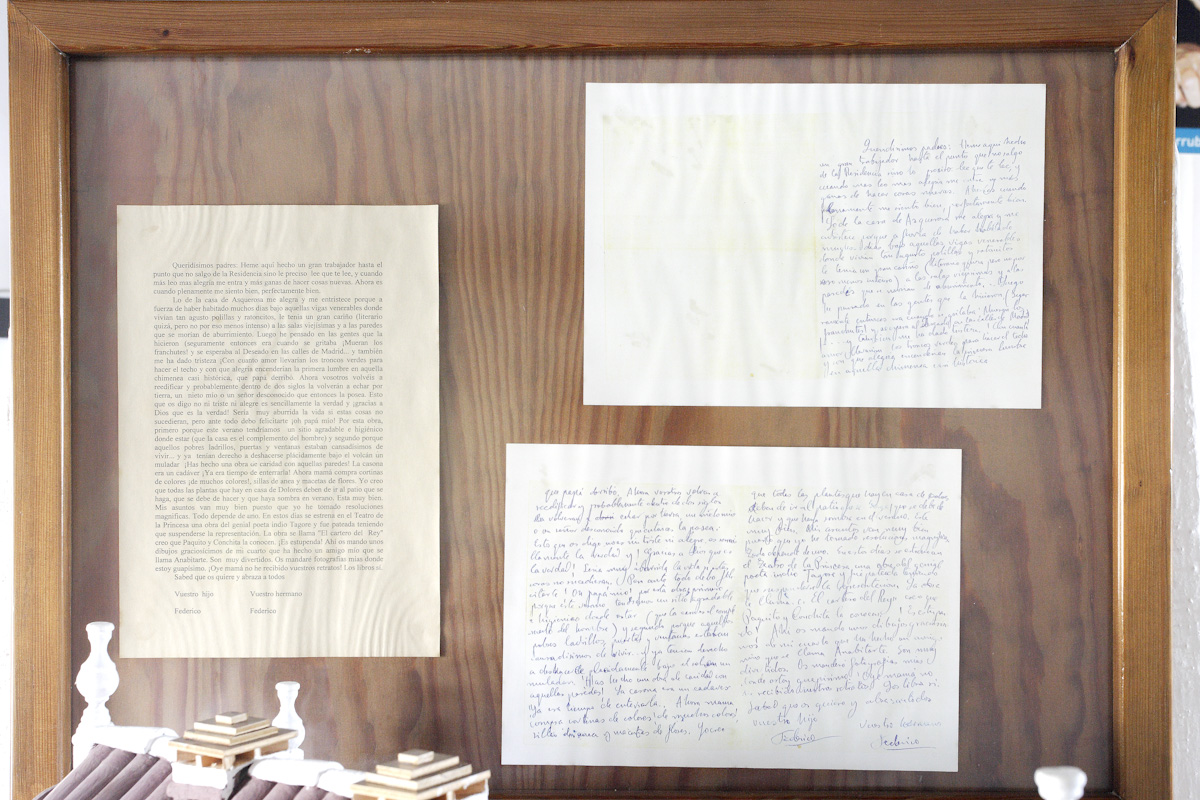 Queridísimos padres: Heme aquí hecho un gran trabajador hasta el
punto que no salgo de la Residencia sino le preciso lee que te lee, y cuando
más leo mas alegría me entra y más ganas de hacer cosas nuevas. Ahora es
cuando plenamente me siento bien, perfectamente bien.
Lo de la casa de Asquerosa me alegra y me entristece porque a
fuerza de haber habitado muchos días bajo aquellas vigas venerables donde
vivían tan agusto polillas y ratoncitos, le tenía un gran cariño (literario
quizá, pero no por eso menos intenso) a las salas viejísimas y a las paredes
que se morían de aburrimiento. Luego he pensado en las gentes que la
hicieron (seguramente entonces era cuando se gritaba ¡Mueran los
franchutes! y se esperaba al Deseado en las calles de Madrid... y también
me ha dado tristeza ¡Con cuanto amor llevarían los troncos verdes para
hacer el techo y con que alegría encenderían la primera lumbre en aquella
chimenea can histórica, que papá derribó. Ahora vosotros volvéis a
reedificar y probablemente dentro de dos siglos la volverán a echar por
tierra, un nieto mío o un señor desconocido que entonces la posea. Esto
que os digo no ni triste ni alegre es sencillamente la verdad y ¡gracias a
Dios que es la verdad! Sería muy aburrida la vida si estas cosas no
sucedieran, pero ante todo debo felicitarte ¡oh papá mío! Por esta obra,
primero porque este verano tendríamos un sitio agradable e higiénico
donde estar (que la casa es el complemento del hombre) y segundo porque
aquellos pobres ladrillos, puertas y ventanas estaban cansadísimos de
vivir... y ya tenían derecho a deshacerse plácidamente bajo el volcán un
muladar ¡Has hecho una obra de caridad con aquellas paredes! La casona
era un cadáver ¡Ya era tiempo de enterarla! Ahora mamá compra cortinas
de colores ¡de muchos colores!, sillas de anea y macetas de flores. Yo creo
que todas las plantas que hay en casa de Dolores deben de ir al patio que se
haga, que se debe de hacer y que haya sombra en verano. Esta muy bien.
Mis asuntos van muy bien punto que yo he tomado resoluciones
magníficas. Todo depende de ano. En estos días se estrena en el Teatro de
la Princesa una obra del genial poeta indio Tagore y fue parada teniendo
que suspenderse la representación. La obra se llama "El cartero del Rey"
creo que Paquito y Conchita la conocen. ¡Es estupenda! Ahí os mando unos
dibujos graciosícimos de mi cuarto que ha hecho un amigo mío que se
llama Anabitarte. Son muy divertidos. Os mandaré fotografías mías donde
estoy guapísimo. ¡Oye mamá no he recibido vuestros retratos! Los libros sí.
Sabed que os quiere y abraza a todos
Vuestro hijo Vuestro hermano
Federico Federico
Queridísimos padres: Heme aquí hecho
un gran trabajador hasta el punto que no salgo
de la Residencia sino le preciso lee que te lee, y
cuando mas leo mas alegría me entra y más
ganas de hacer cosas nuevas. Ahora es cuando
plenamente me siento bien, perfectamente bien
Lo de la casa de Asquerosa me alegra y me
entristece porque a fuerza de haber habitado
muchos días bajo aquellas vigas venerables
donde vivían tan agusto polillas y ratoncitos
le tenía un gran cariño (literario quizá pero no por
eso menos intenso) a las salas viejísimas y a las
paredes que se morían de aburrimiento. Luego
he pensado en las gentes que la hicieron (segu
ramente entonces era cuando se gritaba: Mueran los
franchutes! y se esperaba al Deseado en las calles de Madrid
... y también me ha dado tristeza! ¡Con cuanto
amor llevarían los troncos verdes para hacer el techo
y con que alegría encenderían la primera lumbre
en aquella chimenea can histórica
que papá derribó. Ahora vosotros volveis a
reedificar y probablemente dentro de dos siglos
la volverán a echar por tierra, un nieto mio
o un señor desconocido que entonces la posea.
Esto que os digo no es ni triste ni alegre, es senci
llamente la verdad y ¡Gracias a Dios que es
la verdad! Sería muy aburrida la vida si estas
cosas no sucedieran. Pero ante todo debo feli
citarte! Oh papá mio! por esta obra, primero
porque este verano tendríamos un sitio agradable
e higienico donde estar (que la casa es el comple
mento del hombre) y segundo porque aquellos
pobres ladrillos, puertas y ventanas estaban
cansadísimos de vivir.. y ya tenían derecho
a deshacerse placidamente bajo el volcan un
muladar. ¡Has hecho una obra de caridad con
aquellas paredes! La casona era un cadaver
¡Ya era tiempo de enterarla.. Ahora mamá
compra cortinas de colores! de muchos colores!
sillas de anea y macetas de flores. Yo creo
que todas las plantas que hay en casa de Dolores
deben de ir al patio que se haga, que se debe de
hacer y que haya sombra en el verano. Esta
muy bien. Mis asuntos van muy bien
punto que yo he tomado resoluciones magnificas
Todo depende de uno. En estos días se estrena en
el Teatro de la Princesa una obra del genial
poeta indio Tagore y fue pateada teniendo
que suspenderse la representación. La obra
se llama El cartero del Rey creo que
Paquito y Conchita la conocen! Es estupen
da! Ahí os mando unos dibujos graciosísi
mos de mi cuarto que ha hecho un amigo
mio que se llama Anabitarte. Son muy
divertidos. Os mandaré fotografías mias
donde estoy guapisimo. ¡Oye mamá no
he recibido vuestros retratos! Los libros si.
Sabed que os quiere y abraza a todos
vuestro hijo vuestro hermano
Federico Federico